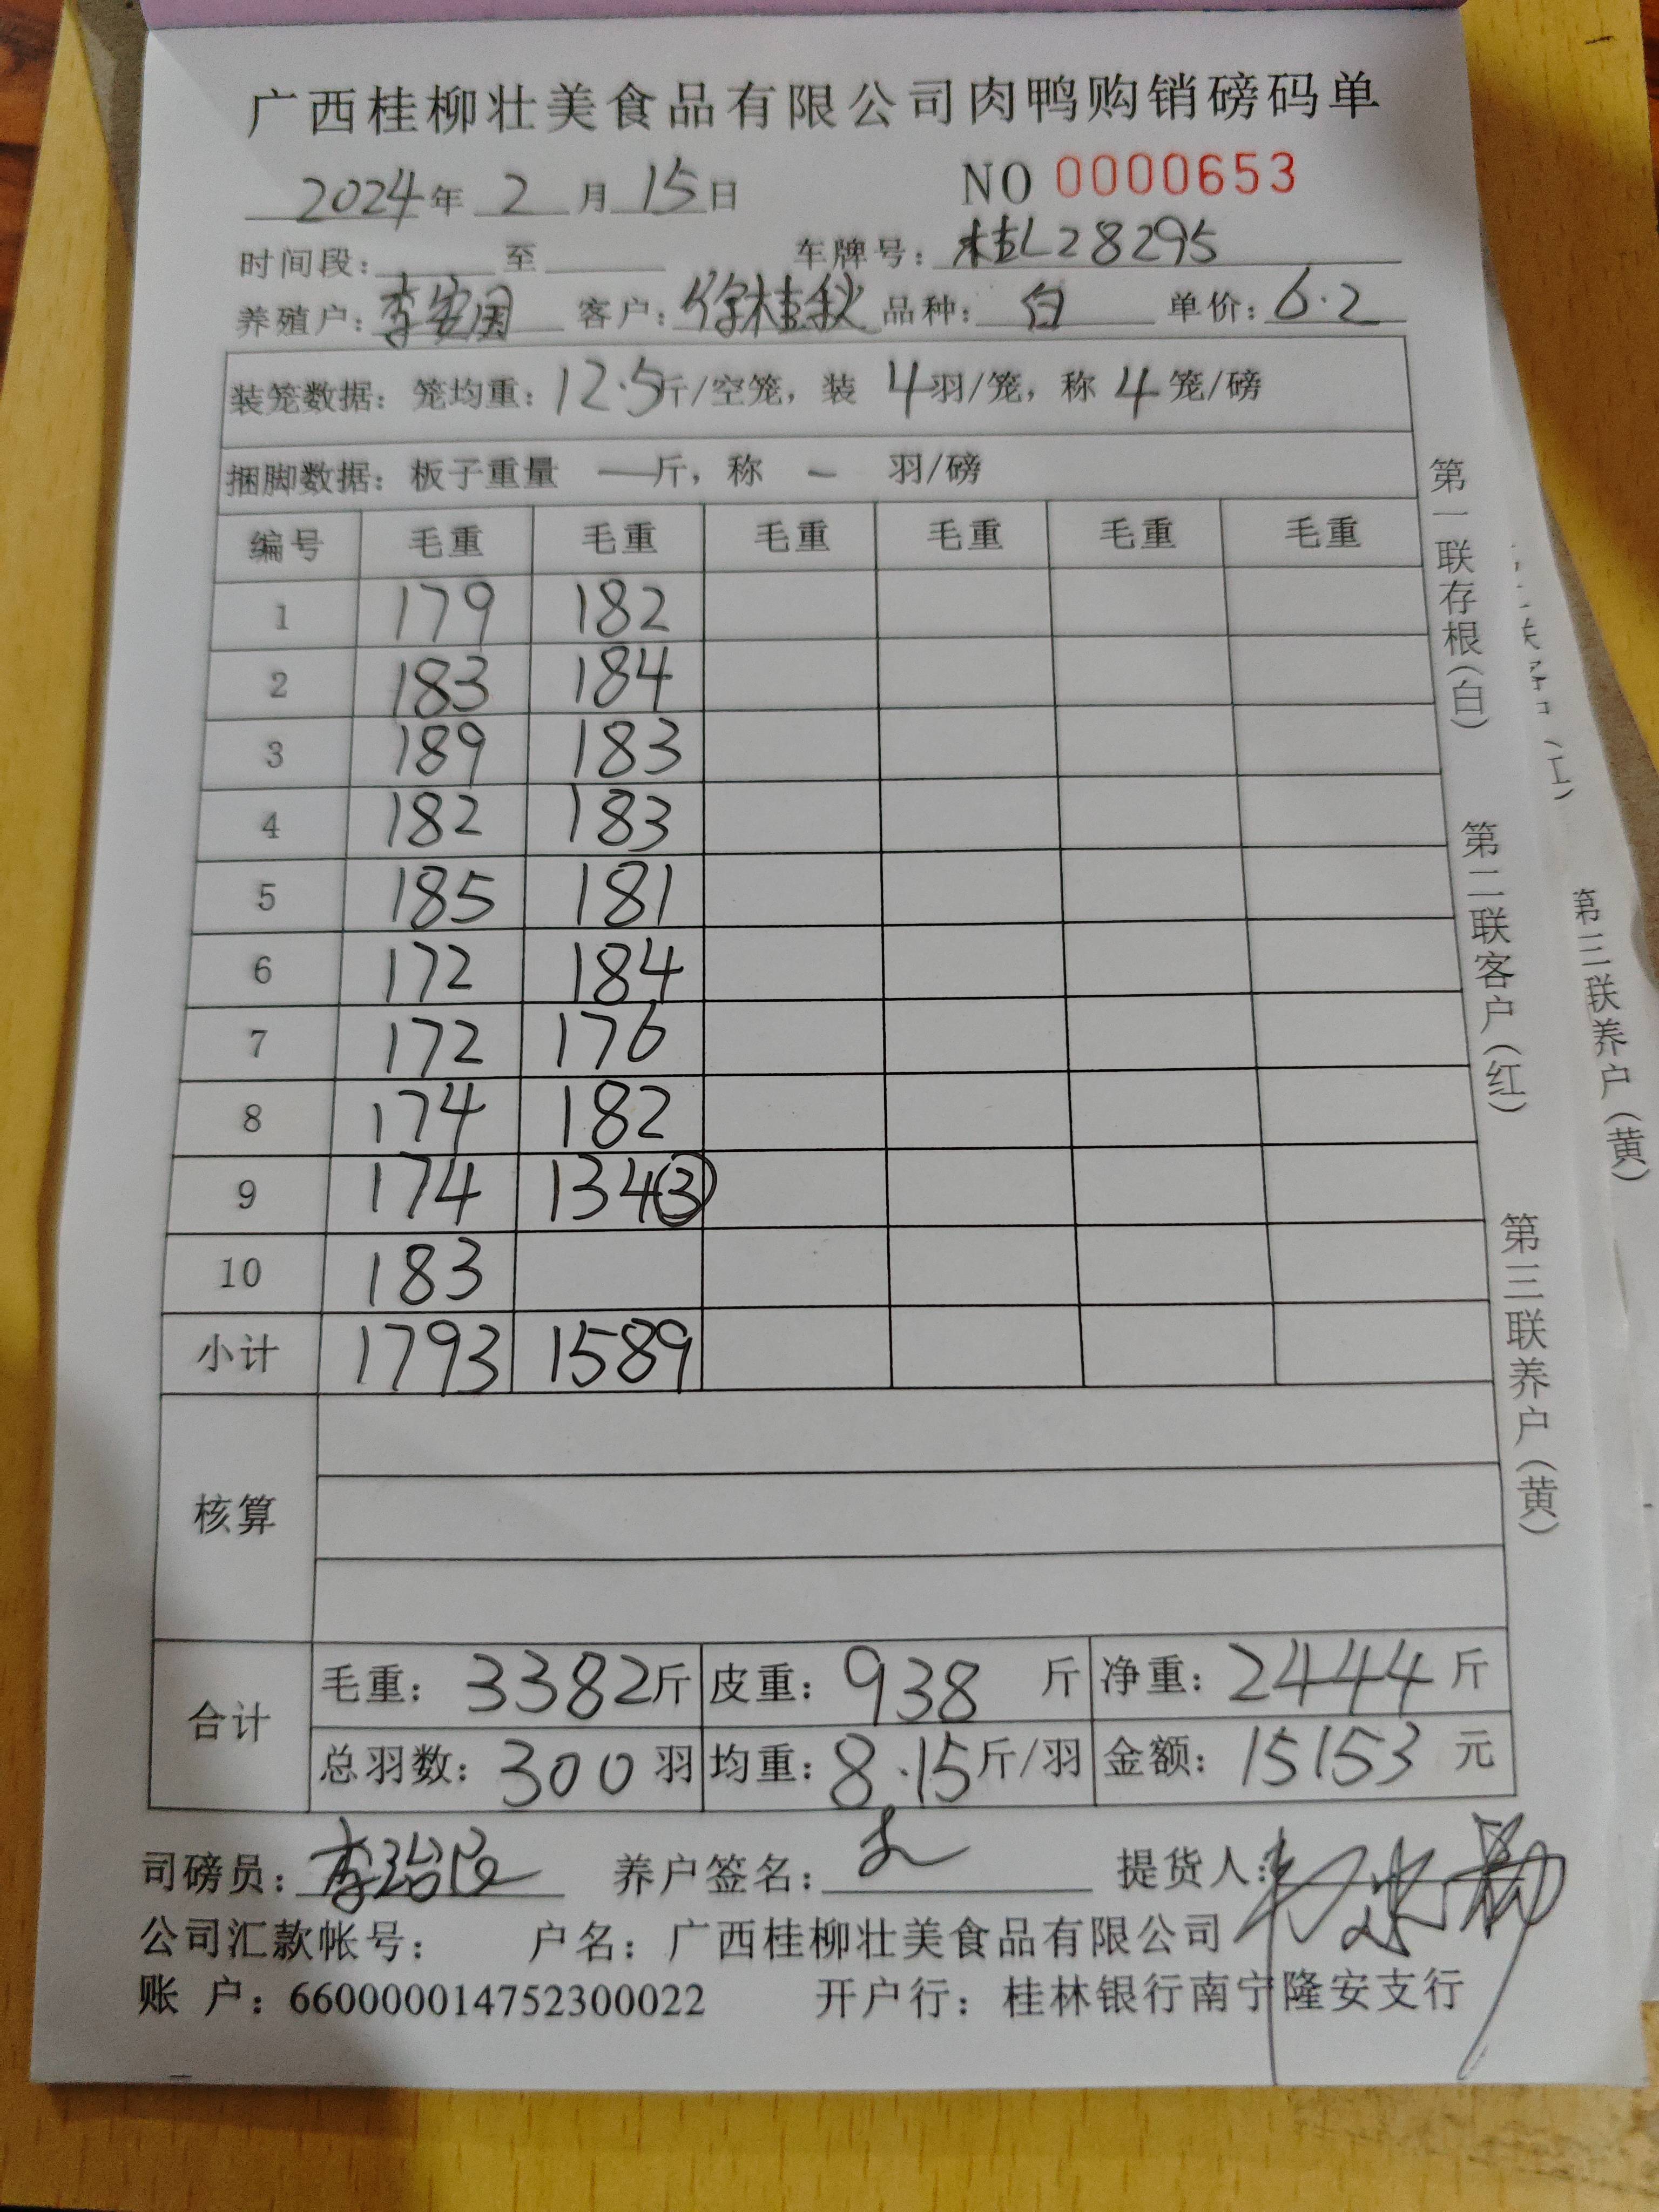 广西桂柳壮美食品有限公司肉鸭购销磅码单
2024年 2 月 15日 NO 0000653
时间段: 至 车牌号: 桂L28295
养殖户: 李安国 客户: 徐桂秋 品种: 白 单价: 6.2
装笼数据: 笼均重: 12.5斤/空笼, 装 4羽/笼, 称 4笼/磅
捆脚数据: 板子重量 —斤, 称 — 羽/磅
编号 毛重 毛重 毛重 毛重 毛重 毛重
1 179 182
2 183 184
3 189 183
4 182 183
5 185 181
6 172 184
7 172 176
8 174 182
9 174 134③
10 183
小计 1793 1589
核算
合计 毛重: 3382斤 皮重: 938 斤 净重: 2444斤
总羽数: 300羽 均重: 8.15斤/羽 金额: 15153 元
司磅员: 养户签名: 提货人:
公司汇款帐号: 户名: 广西桂柳壮美食品有限公司
账 户: 660000014752300022 开户行: 桂林银行南宁隆安支行
第一联存根(白) 第二联客户(红) 第三联养户(黄)
第三联养户(黄)